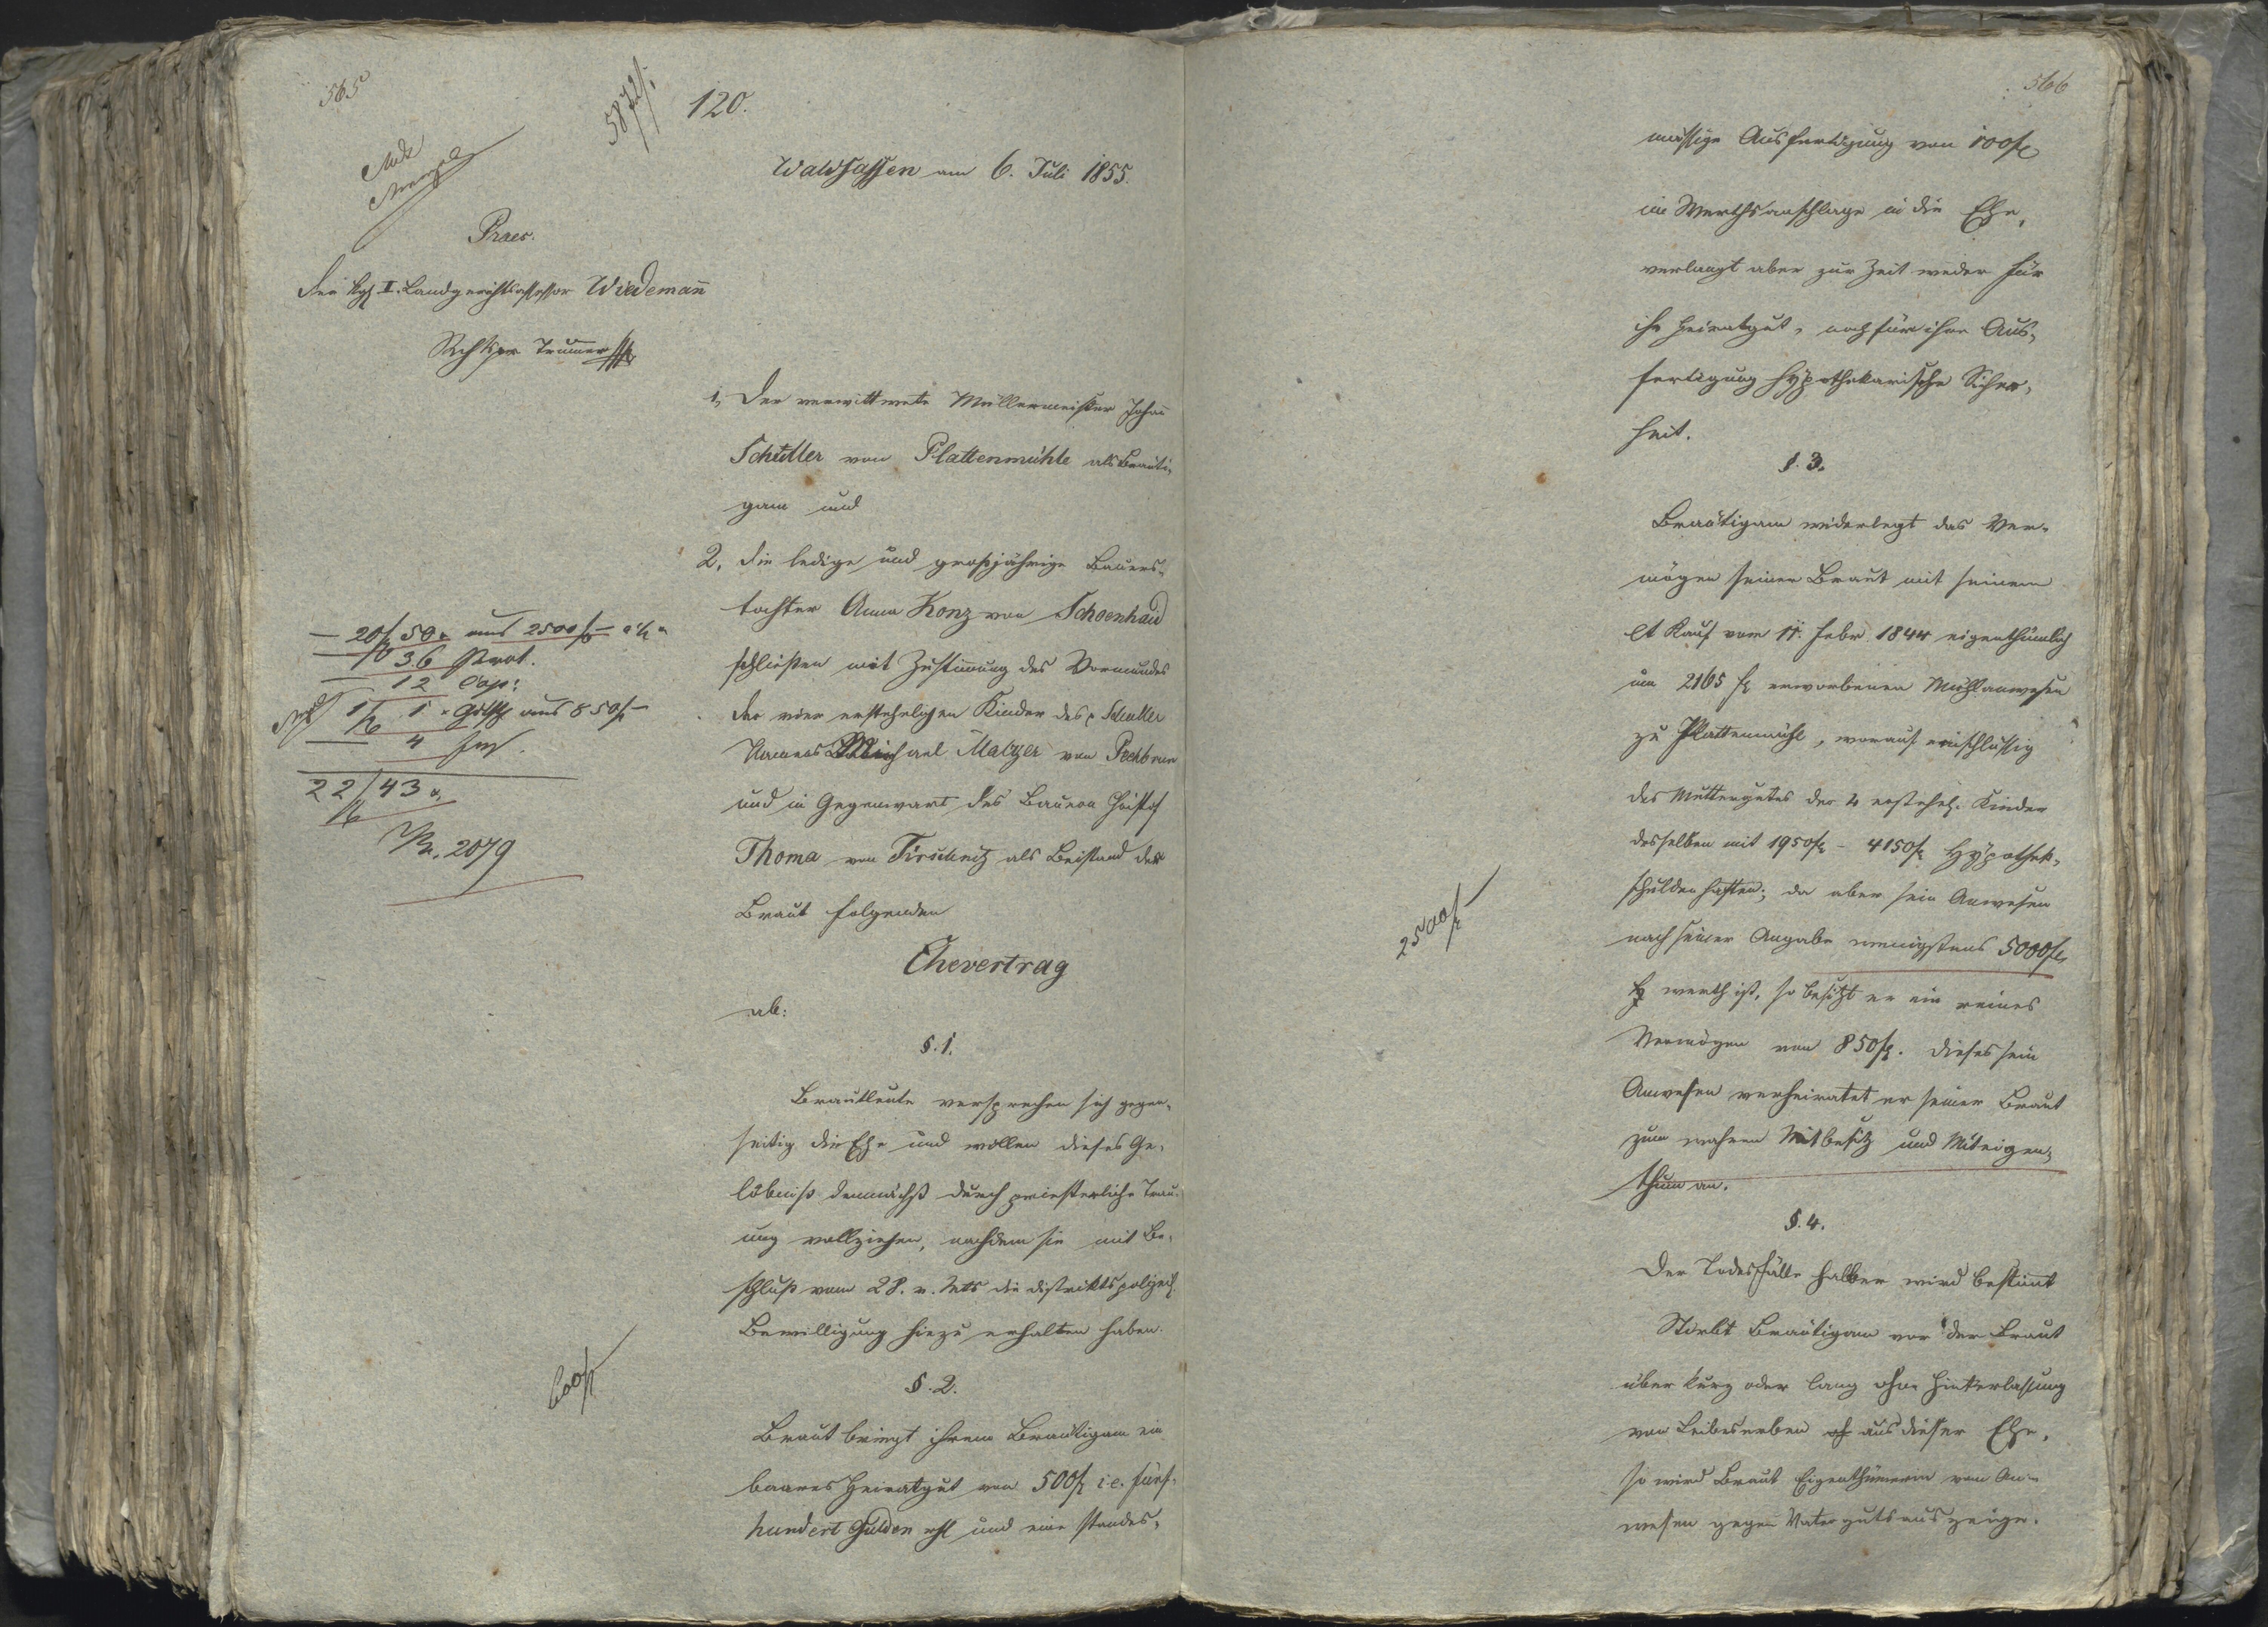 565
5872/.
120.
Waldsassen am 6. Juli 1855.
Praes.
Der kgl. II. Landgerichtsassessor Wiedemañ
1, Der verwittwete Müllermeister Johañ
Schuller von Plattenmühle als Bräuti-
gam und
2, die ledige und großjährige Bauers-
tochter Anna Konz von Schoenhaid
schließen mit Zustimmung des Vormundes
der vier ersteheligen Kinder des p Schuller
Namens Michael Malzer von Pechbrun
und in Gegenwart des Bauern Christof
Thoma von Tirschnitz als Beistand der
Braut folgenden
Ehevertrag
ab:
§. 1.
Brautleute versprechen sich gegen-
seitig die Ehe und wollen dieses Ge-
löbniß demnächst durch priesterliche Trau-
ung vollziehen, nachdem sie mit Be-
schluß vom 28. v. Mts die distriktspolizeil.
Bewilligung hiezu erhalten haben.
§. 2.
Braut bringt ihrem Bräutigam ein
baares Heiratgut von 500 f i.e. fünf-
hundert Gulden rhl und eine standes-
20 f 50 x aus 2500 f
36 Prot.
12
1 f 1 x aus 850 f
4
22 f 43 x
Nr. 2079
600 f
566
mässige Ausfertigung von 100 f
im Werthsanschlage in die Ehe,
verlangt aber zur Zeit weder für
ihr Heiratgut, noch für ihre Aus-
fertigung hypothekarische Sicher-
heit.
§. 3.
Bräutigam widerlegt das Ver-
mögen seiner Braut mit seinem
lt Kauf vom 17. Febr 1844 eigenthümlich
um 2165 f erworbenen Mühlanwesen
zu Plattenmühl, worauf einschlüssig
des Muttergutes der 4 erstehel. Kinder
desselben mit 1950 f - 4150 f Hypothek-
schulden haften; da aber sein Anwesen
nach seiner Angabe wenigstens 5000 f
werth ist, so besitzt er ein reines
Vermögen von 850 f. Dieses sein
Anwesen verheiratet er seiner Braut
zum wahren Mitbesitz und Miteigen-
thum an.
§. 4.
Der Todesfälle halber wird bestimmt
Stirbt Bräutigam vor der Braut
über kurz oder lang ohne Hinterlassung
von Leibeserben aus dieser Ehe,
so wird Braut Eigenthümerin vom An-
wesen gegen Vatergutsauszeige.
2500 f